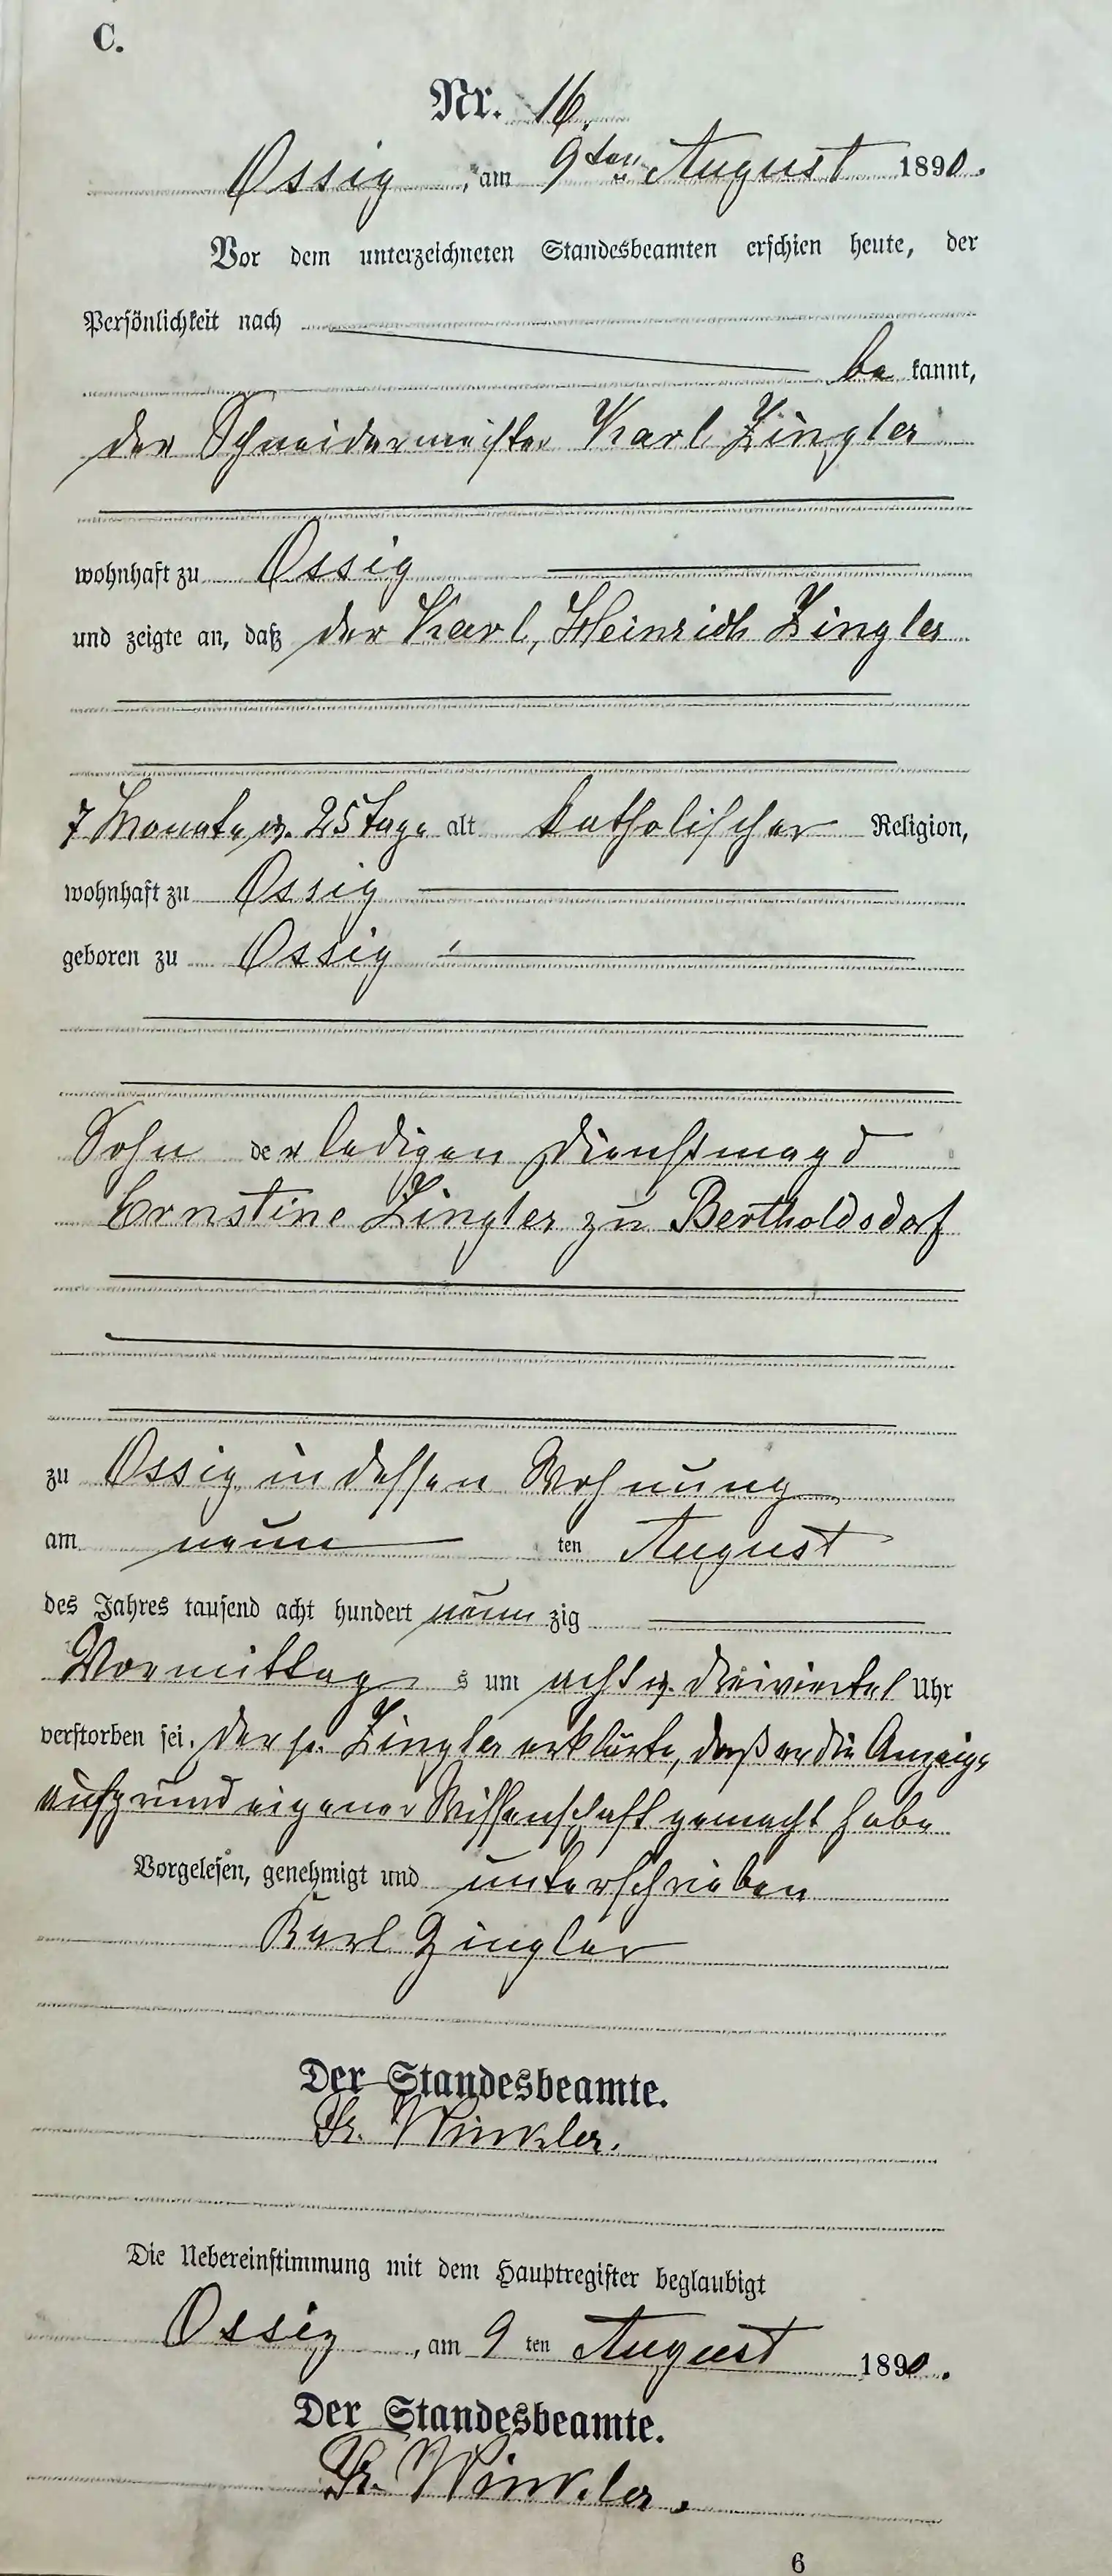 C.
Nr. 16.
Ossig, am 9ten August 1890.
Vor dem unterzeichneten Standesbeamten erschien heute, der
Persönlichkeit nach
be kannt,
der Schneidermeister Karl Zingler
wohnhaft zu Ossig
und zeigte an, daß der Karl, Heinrich Zingler
7 Monate u. 25 Tage alt katholischer Religion,
wohnhaft zu Ossig
geboren zu Ossig
Sohn der ledigen Dienstmagd
Ernstine Zingler zu Bertholdsdorf
zu Ossig in dessen Wohnung
am neun ten August
des Jahres tausend acht hundert neun zig
Vormittag s um acht u. dreiviertel Uhr
verstorben sei. Der Zingler erklärte, daß er die Anzeige
auf grund eigener Wissenschaft gemacht habe
Vorgelesen, genehmigt und unterschrieben
Karl Zingler
Der Standesbeamte.
Winkler.
Die Uebereinstimmung mit dem Hauptregister beglaubigt
Ossig, am 9 ten August 1890.
Der Standesbeamte.
Winkler.
6